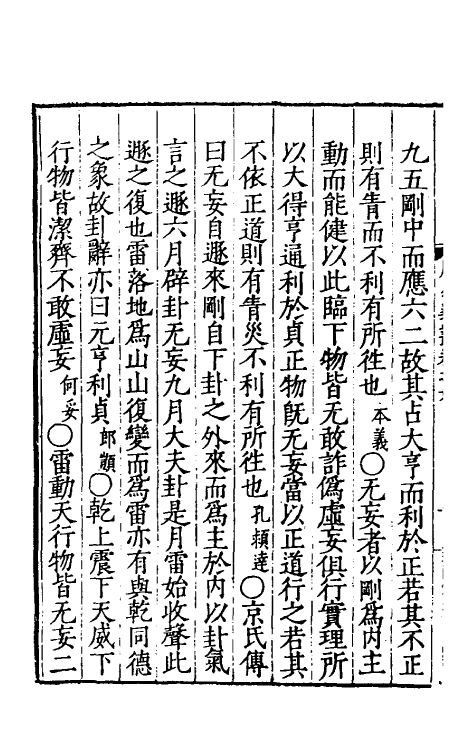 九五剛中而應六二故其占大亨而利於正若其不正
則有眚而不利有所徃也本義○无妄者以剛爲內主
動而能健以此臨下物皆无敢詐僞虛妄俱行實理所
以大得亨通利於貞正物旣无妄當以正道行之若其
不依正道則有眚災不利有所徃也孔穎達○京氏傳
曰无妄自遯來剛自下卦之外來而爲主於內以卦氣
言之遯六月辟卦无妄九月大夫卦是月雷始收聲此
遯之復也雷落地爲山山復變而爲雷亦有與乾同德
之象故卦辭亦曰元亨利貞郎顗○乾上震下天威下
行物皆潔齊不敢虛妄何妥○雷動天行物皆无妄二